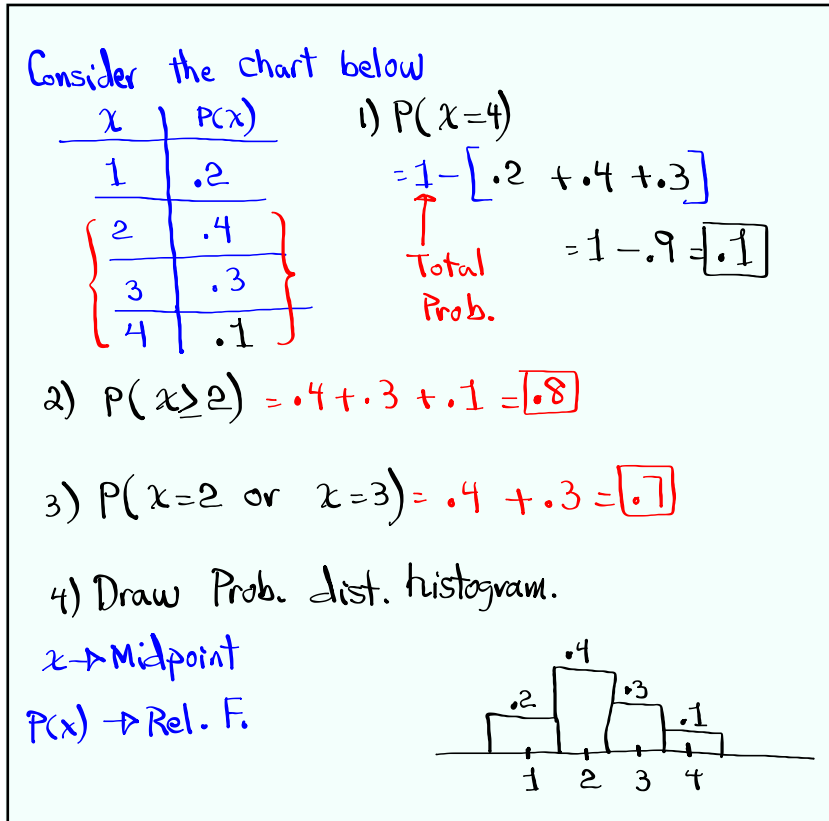 Consider the chart below
x P(x)
1 .2
2 .4
3 .3
4 .1
1) P(x=4)
=1-[.2 +.4 +.3]
=1-.9=.1
Total
Prob.
2) P(x≥2) = .4+.3+.1 = .8
3) P(x=2 or x=3)= .4 +.3 = .7
4) Draw Prob. dist. histogram.
x→Midpoint
P(x) → Rel. F.
.2 .4 .3 .1
1 2 3 4